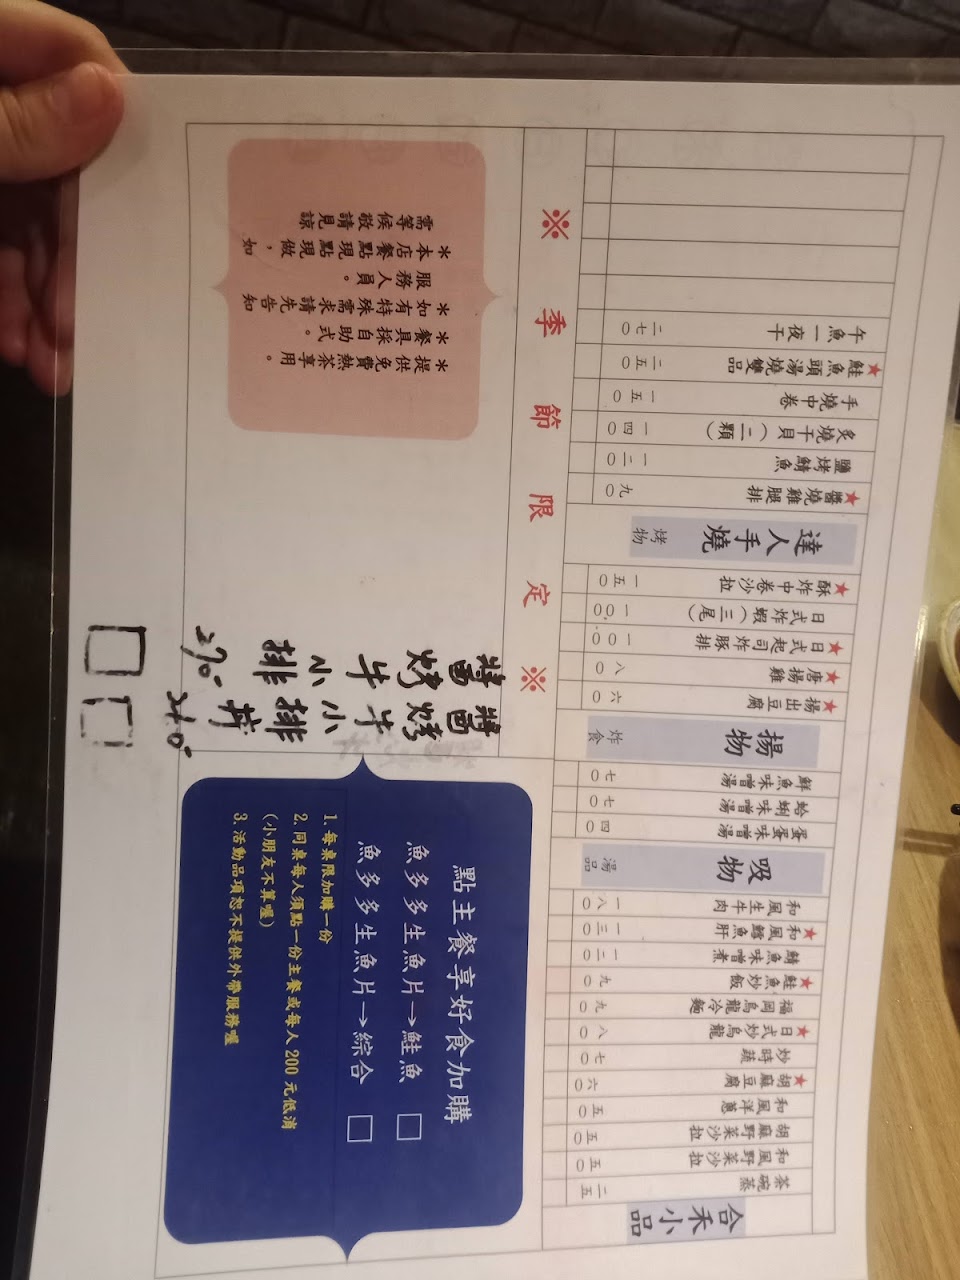 合禾小品
茶碗蒸 二五
和風野菜沙拉 五〇
胡麻野菜沙拉 五〇
和風洋蔥 五〇
★胡麻豆腐 六〇
炒時蔬 七〇
★日式炒烏龍 八〇
福岡烏龍冷麵 九〇
★鮭魚炒飯 九〇
鯖魚味噌煮 一二〇
★和風鱈魚肝 一三〇
和風生牛肉 一八〇
吸物 湯品
蛋蛋味噌湯 四〇
蛤蜊味噌湯 七〇
鮮魚味噌湯 七〇
揚物 炸食
★揚出豆腐 六〇
★唐揚雞 八〇
★日式起司炸豚排 一〇〇
日式炸蝦(三尾) 一〇〇
★酥炸中卷沙拉 一五〇
達人手燒 烤物
★醬燒雞腿排 九〇
鹽烤鯖魚 一二〇
炙燒干貝(二顆) 一四〇
手燒中卷 一五〇
★鮭魚頭湯燒雙品 二五〇
午魚一夜干 二七〇
※季節限定※
醬烤牛小排丼 240
醬烤牛小排 270
*提供免費熱茶享用。
*餐具採自助式。
*如有特殊需求請先告知
服務人員。
*本店餐點現點現做,如
需等候敬請見諒
點主餐享好食加購
魚多多生魚片→鮭魚 □
魚多多生魚片→綜合 □
1.每桌限加購一份
2.同桌每人須點一份主餐或每人 200 元低消
(小朋友不算喔)
3.活動品項恕不提供外帶服務喔